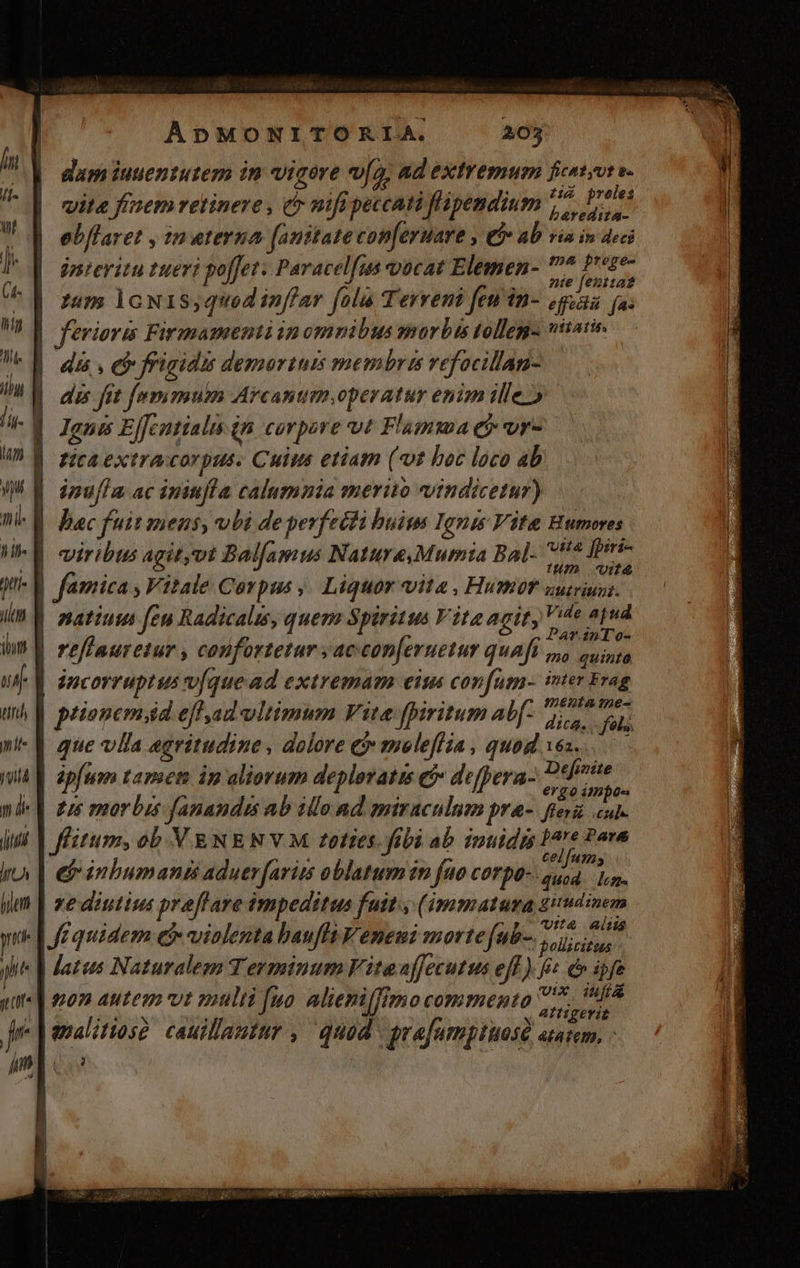 ADMONITORIA. 203
dum iuuentutem in vigore vſq; ad extremum
vitæ finem retinere, & niſi peccati ſtipendium
obſtaret, in æterna ſanitate conſeruare, & ab
interitu tueri poſſet. Paracelſus vocat Elemen-
tum IGNIS, quod inſtar ſolis Terreni ſeu in-
ferioris Firmamenti in omnibus morbis tollen-
dis, & frigidis demortuis membris refocillan-
dis ſit ſummum Arcanum, operatur enim ille
Ignis Eſſentialis in corpore vt Flamma & vr-
tica extra corpus. Cuius etiam (vt hoc loco ab
iniuſta calumnia merito vindicetur)
hæc fuit mens, vbi de perfecti huius Ignis Vitæ
viribus agit, vt Balſamus Naturæ, Mumia Bal-
ſamica, Vitale Corpus, Liquor vitæ, Humor
natiuus ſeu Radicalis, quem Spiritus Vitæ agit,
reſtauretur, confortetur, ac conſeruetur quaſi
incorruptus vſque ad extremam eius conſum-
ptionem, id eſt, ad vltimum Vitæ ſpiritum abſ-
que vlla ægritudine, dolore & moleſtia, quod
ipſum tamen in aliorum deploratis & deſpera-
tis morbis ſanandis ab illo ad miraculum præ-
ſtitum, ob VENENVM toties ſibi ab inuidis
& inhumanis aduerſariis oblatum in ſuo corpo-
re diutius præſtare impeditus fuit, (immatura
ſiquidem & violenta hauſti Veneni morte ſub-
latus Naturalem Terminum Vitæ aſſecutus eſt)
non autem vt multi ſuo alieniſſimo commento
malitiosè cauillantur, quod præſumptuosè
ſicut, vt e-
tiã proles
hæredita-
ria in deci
ma proge-
nie ſentiat
effectũ ſa-
nitatis.
Humores
vitæ ſpiri-
tum vitæ
nutriunt.
Vide apud
Par. in To-
mo quinto
inter Frag
menta me-
dica. fols.
162.
Definite
ergo impo-
ſteri cul-
pare Para
celſum,
quod lon-
gitudinem
vitæ aliis
pollicitus
ſit & ipſe
vix iuſtã
attigerit
ætatem,